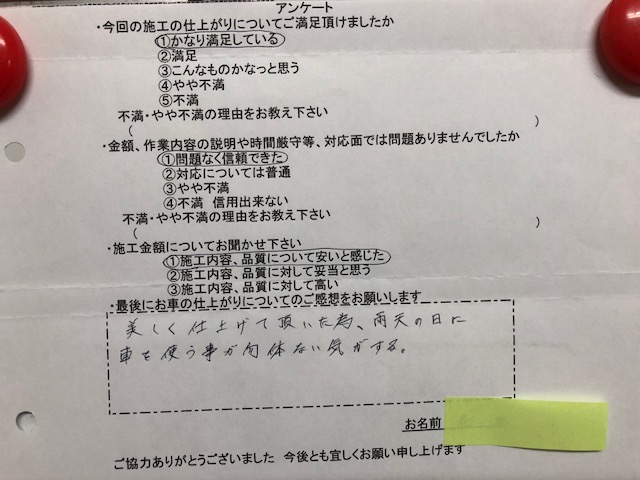 アンケート
・今回の施工の仕上がりについてご満足頂けましたか
①かなり満足している
②満足
③こんなものかなっと思う
④やや不満
⑤不満
不満・やや不満の理由をお教え下さい
( )
・金額、作業内容の説明や時間厳守等、対応面では問題ありませんでしたか
①問題なく信頼できた
②対応については普通
③やや不満
④不満 信用出来ない
不満・やや不満の理由をお教え下さい
( )
・施工金額についてお聞かせ下さい
①施工内容、品質について安いと感じた
②施工内容、品質に対して妥当と思う
③施工内容、品質に対して高い
・最後にお車の仕上がりについてのご感想をお願いします
美しく仕上げて頂いた為、雨天の日に
車を使う事が勿体ない気がする。
お名前
ご協力ありがとうございました 今後とも宜しくお願い申し上げます